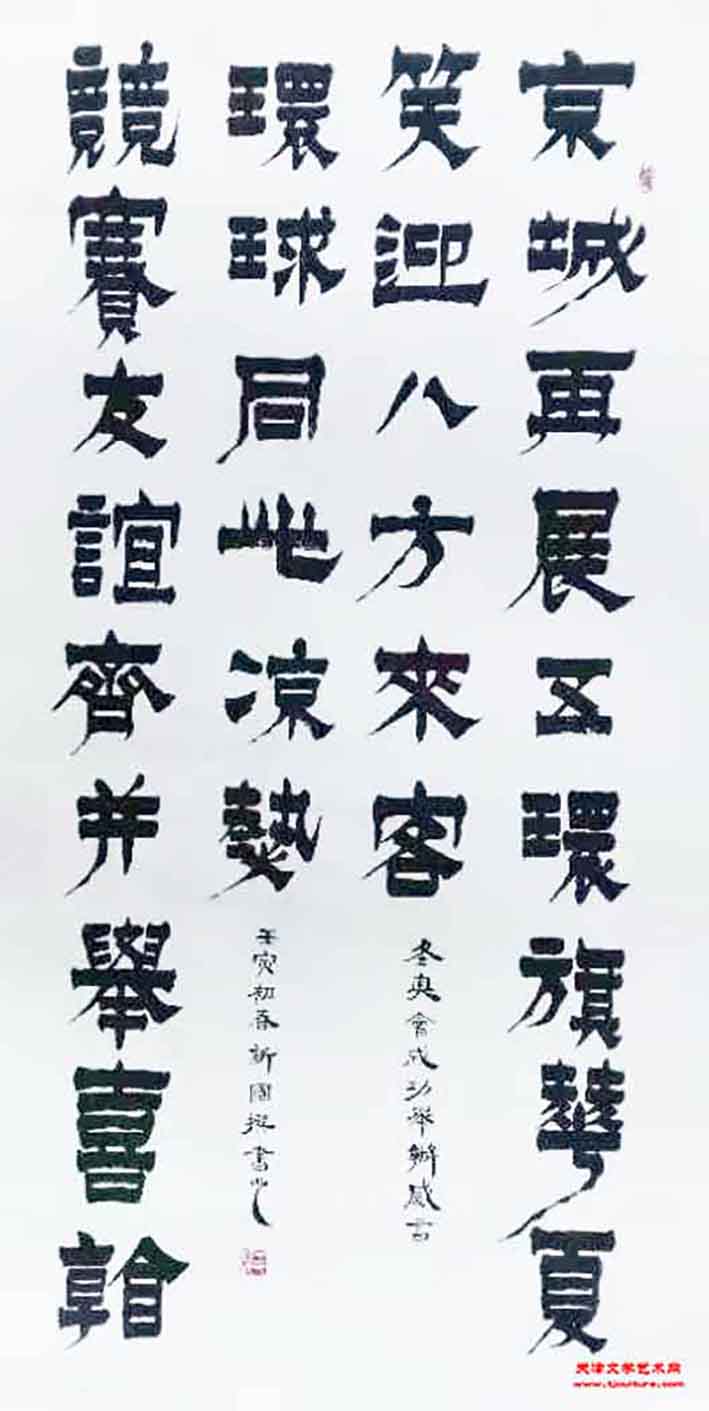 京城再展五環旗華夏
笑迎八方來客
冬奥會成功举辦感言
競賽友誼齊并舉喜
環球同此凉熱
壬寅初春新國撰書
天津文学艺术网
www.tjculture.com